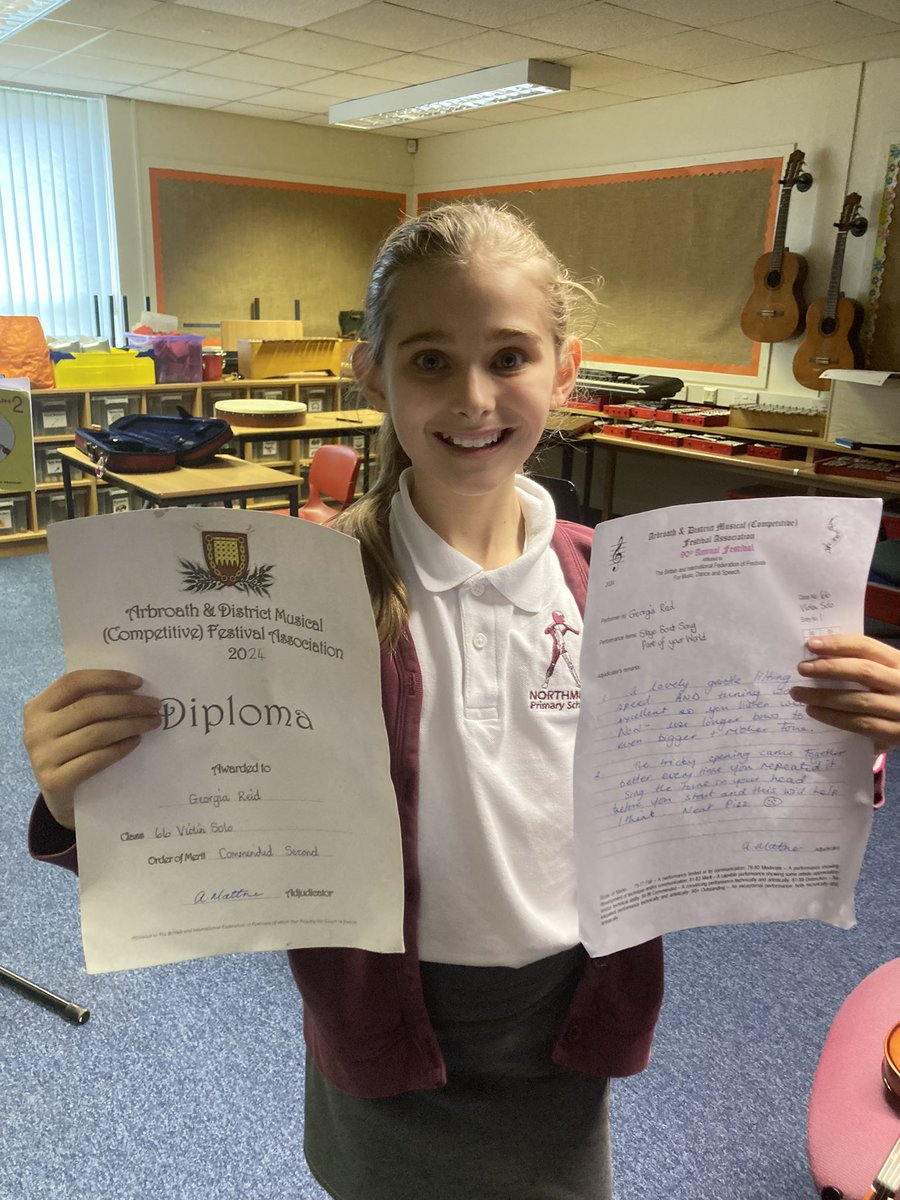 Arbroath & District Musical
(Competitive) Festival Association
2024
Diploma
Awarded to
Georgia Reid
Class 66 Violin Solo
Order of Merit Commended Second
A Mattne Adjudicator
NORTHM
Primary Sch
Arbroath & District Musical (Competitive)
Festival Association
90th Annual Festival
Affiliated to
The British and International Federation of Festivals
For Music, Dance and Speech
2024
Class No: 66
Violin Solo
Entry No: 1
Performer (s) Georgia Reid
Performance Items: Skye Boat Song
Part of your World
Adjudicator's remarks:
1. A lovely gentle lilting
speed AND tuning was
excellent so you listen
Now - use longer bows to
even bigger + richer tone.
2. The tricky opening came together
better every time you repeated it
Sing the tune in your head
before you start and this will help
I think. Neat Pizz
A Mattne Adjudicator
2